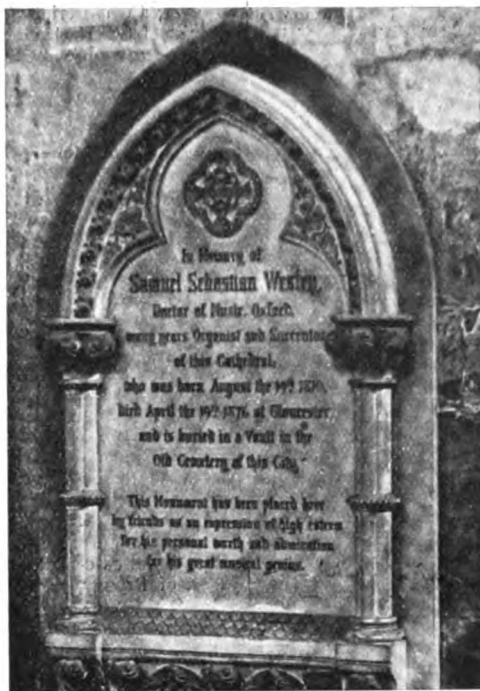 In Memory of
Samuel Sebastian Wesley,
Doctor of Music, Oxford,
many years Organist and Succentor
of this Cathedral,
who was born August the 14th 1810,
died April the 19th 1876 at Gloucester,
and is buried in a Vault in the
Old Cemetery of this City.
This Monument has been placed here
by friends as an expression of high esteem
for his personal worth and admiration
for his great musical genius.